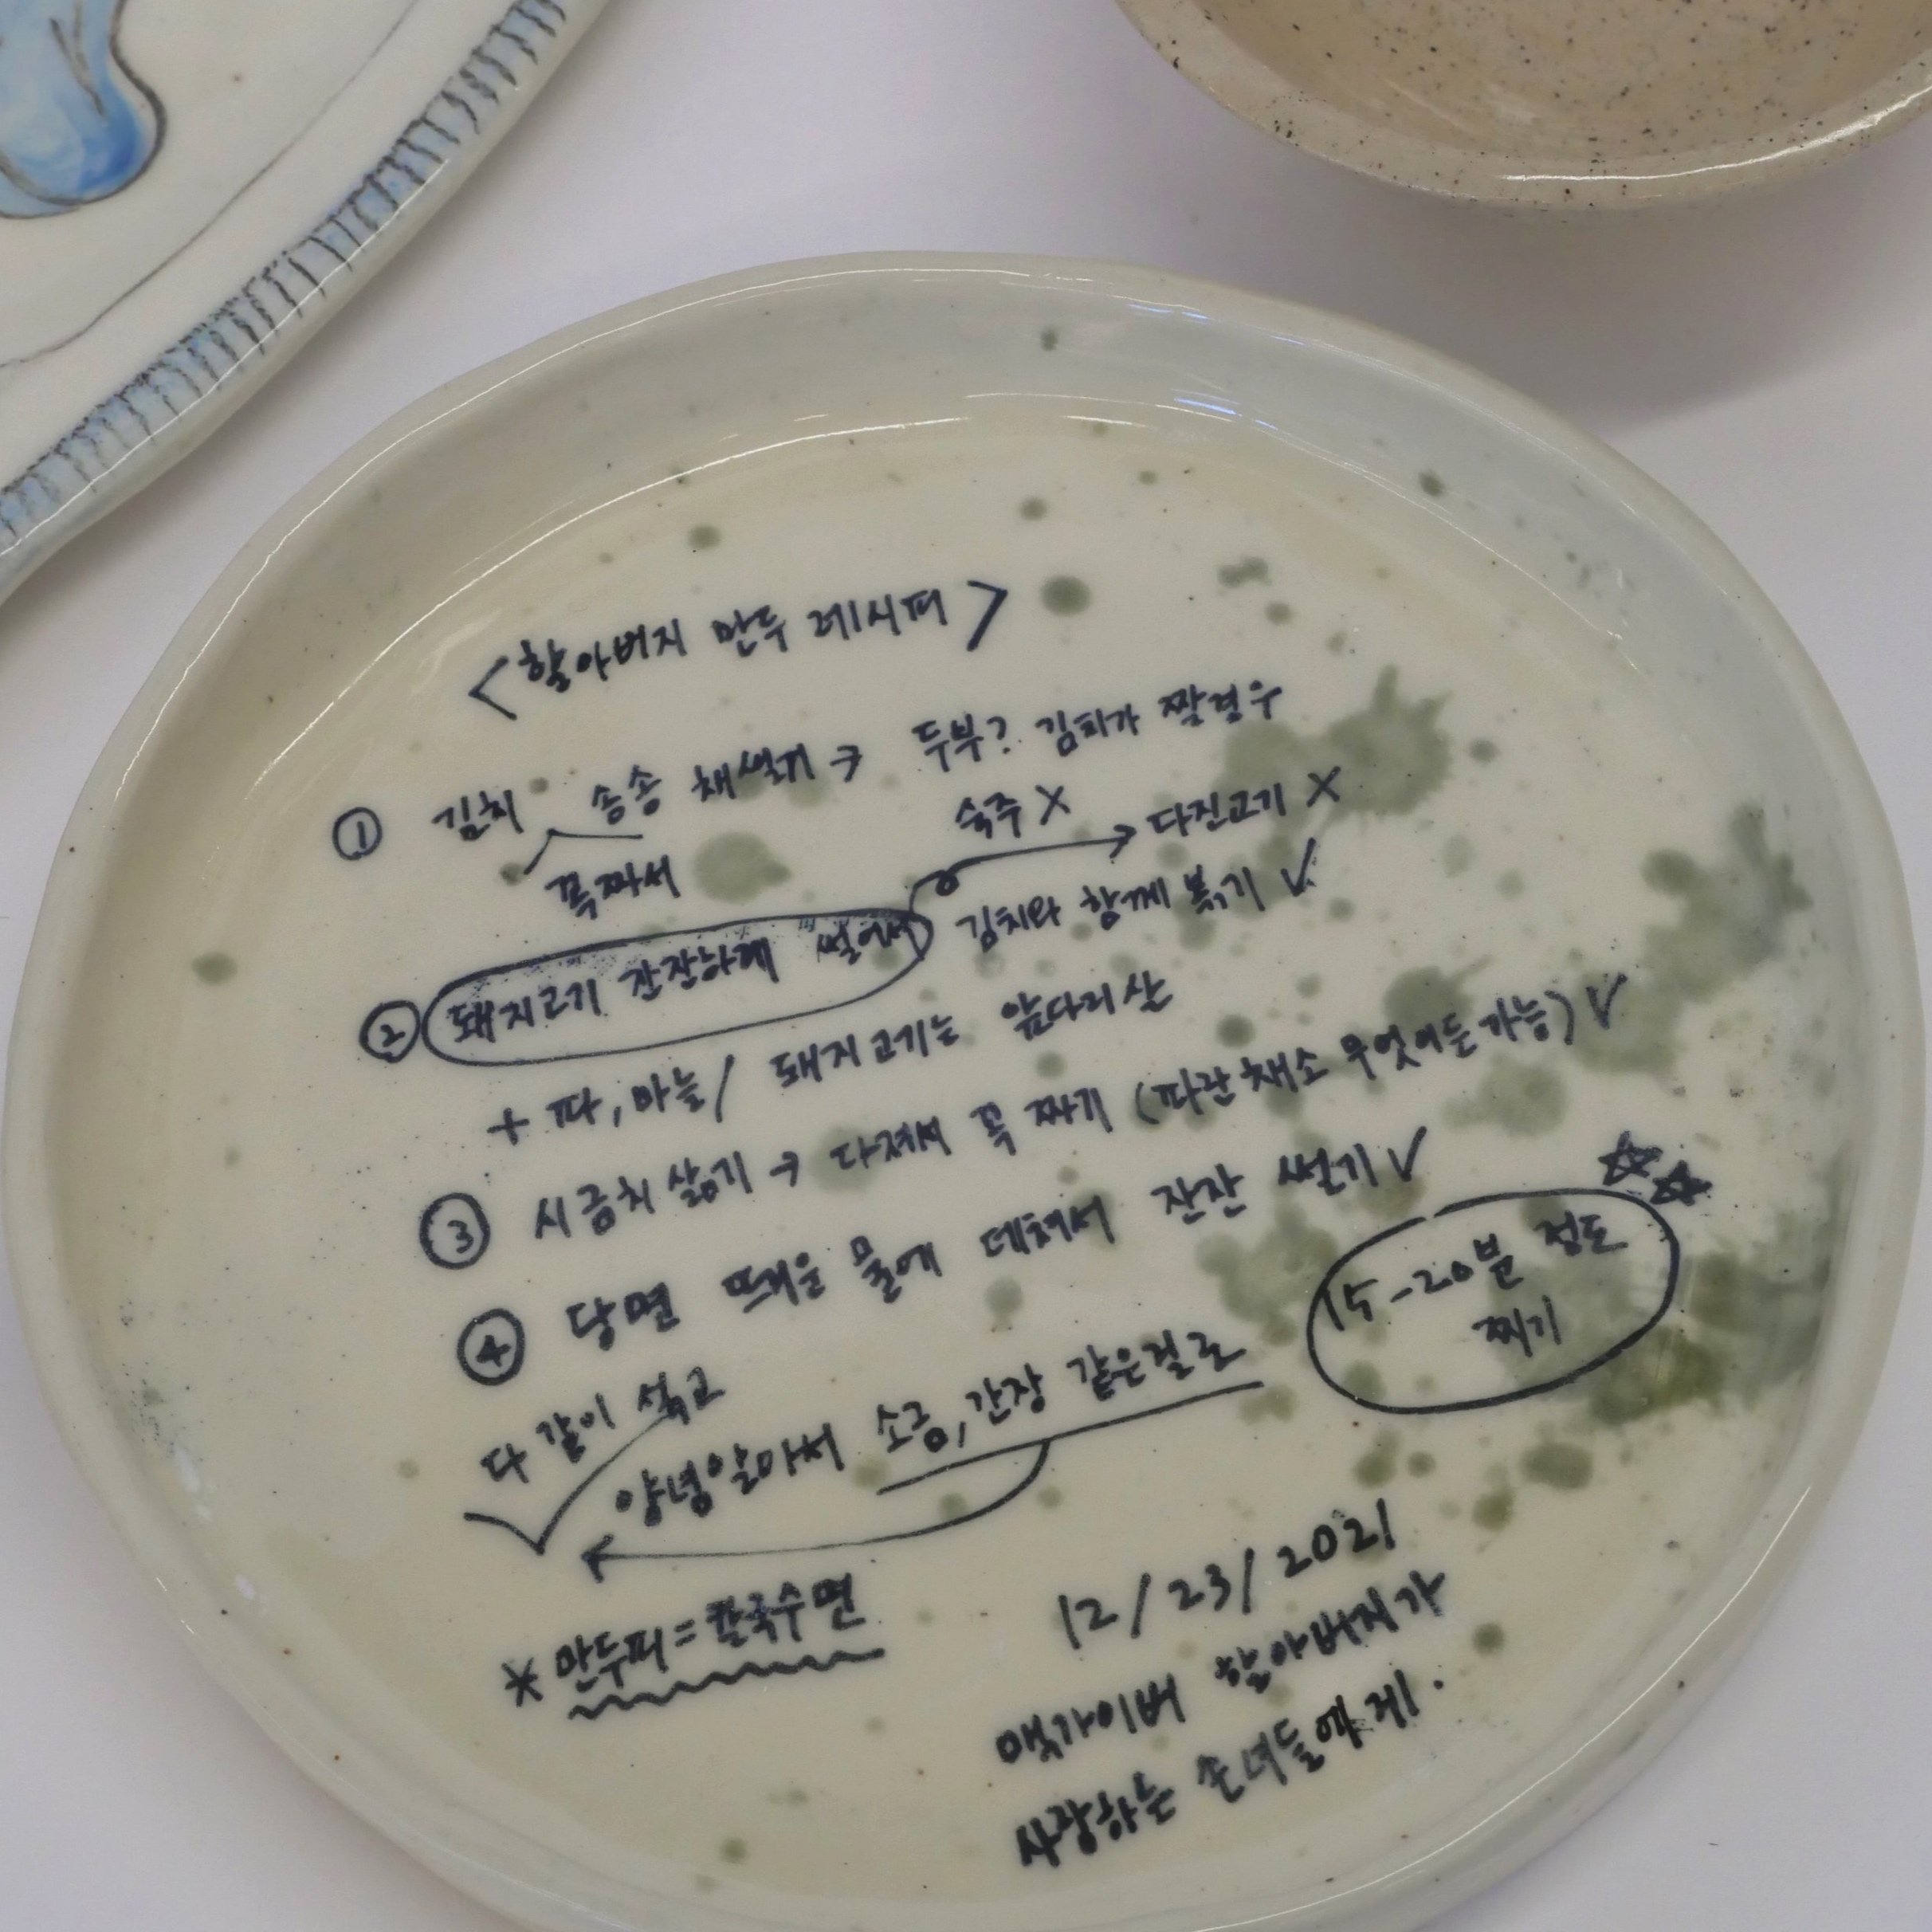 <할아버지 만두 레시피>
① 김치 송송 채썰기 → 두부? 김피가 짤경우
꼭짜서
숙주 X
→ 다진고기 X
② 돼지고기 잔잔하게 썰어서 김치와 함께 볶기 ✓
+ 파, 마늘 / 돼지고기는 앞다리살
③ 시금치 삶기 → 다져서 꼭 짜기 (파란채소 무엇이든가능) ✓
④ 당면 뜨거운 물에 데쳐서 잔잔 썰기 ✓
다 같이 섞고
양념알아서 소금, 간장 같은걸로
15-20분 정도
찌기
* 만두피 = 칼국수면
12/23/2021
맥가이버 할아버지가
사랑하는 손녀들에게.